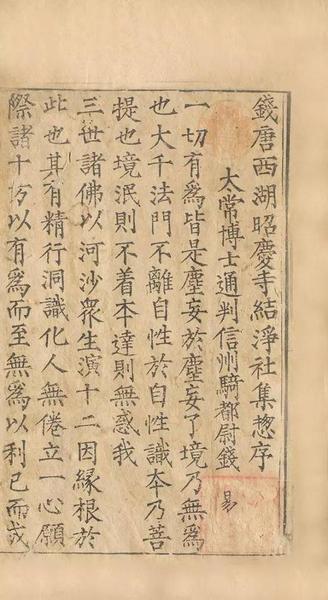 錢唐西湖昭慶寺結淨社集惣序
太常博士通判信州騎都尉錢易
一切有爲皆是塵妄於塵妄了境乃無爲
也大千法門不離自性於自性識本乃菩
提也境泯則不着本達則無惑我
三世諸佛以河沙衆生演十二因緣根於
此也其有精行洞識化人無倦立一心願
際諸十方以有爲而至無爲以利已而成